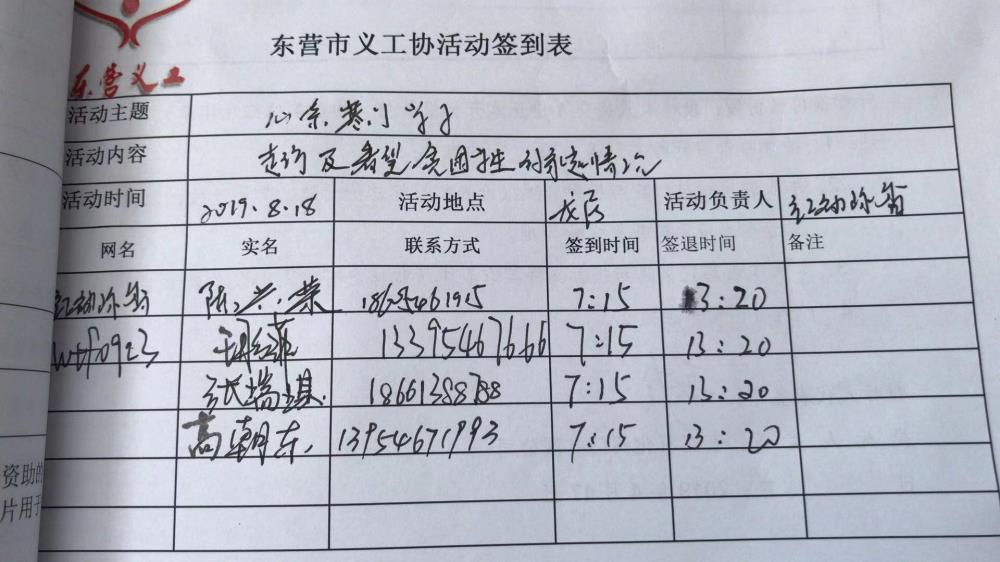 东营市义工协活动签到表
东营义工
活动主题 心系寒门学子
活动内容 走访及看望贫困学生
活动时间 2019.8.18 活动地点 龙居 活动负责人
网名 实名 联系方式 签到时间 签退时间 备注
陈兴荣 7:15 13:20
13395467666 7:15 13:20
张瑞琪 18661388788 7:15 13:20
高朝东 13954671993 7:15 13:20
资助的
片用于